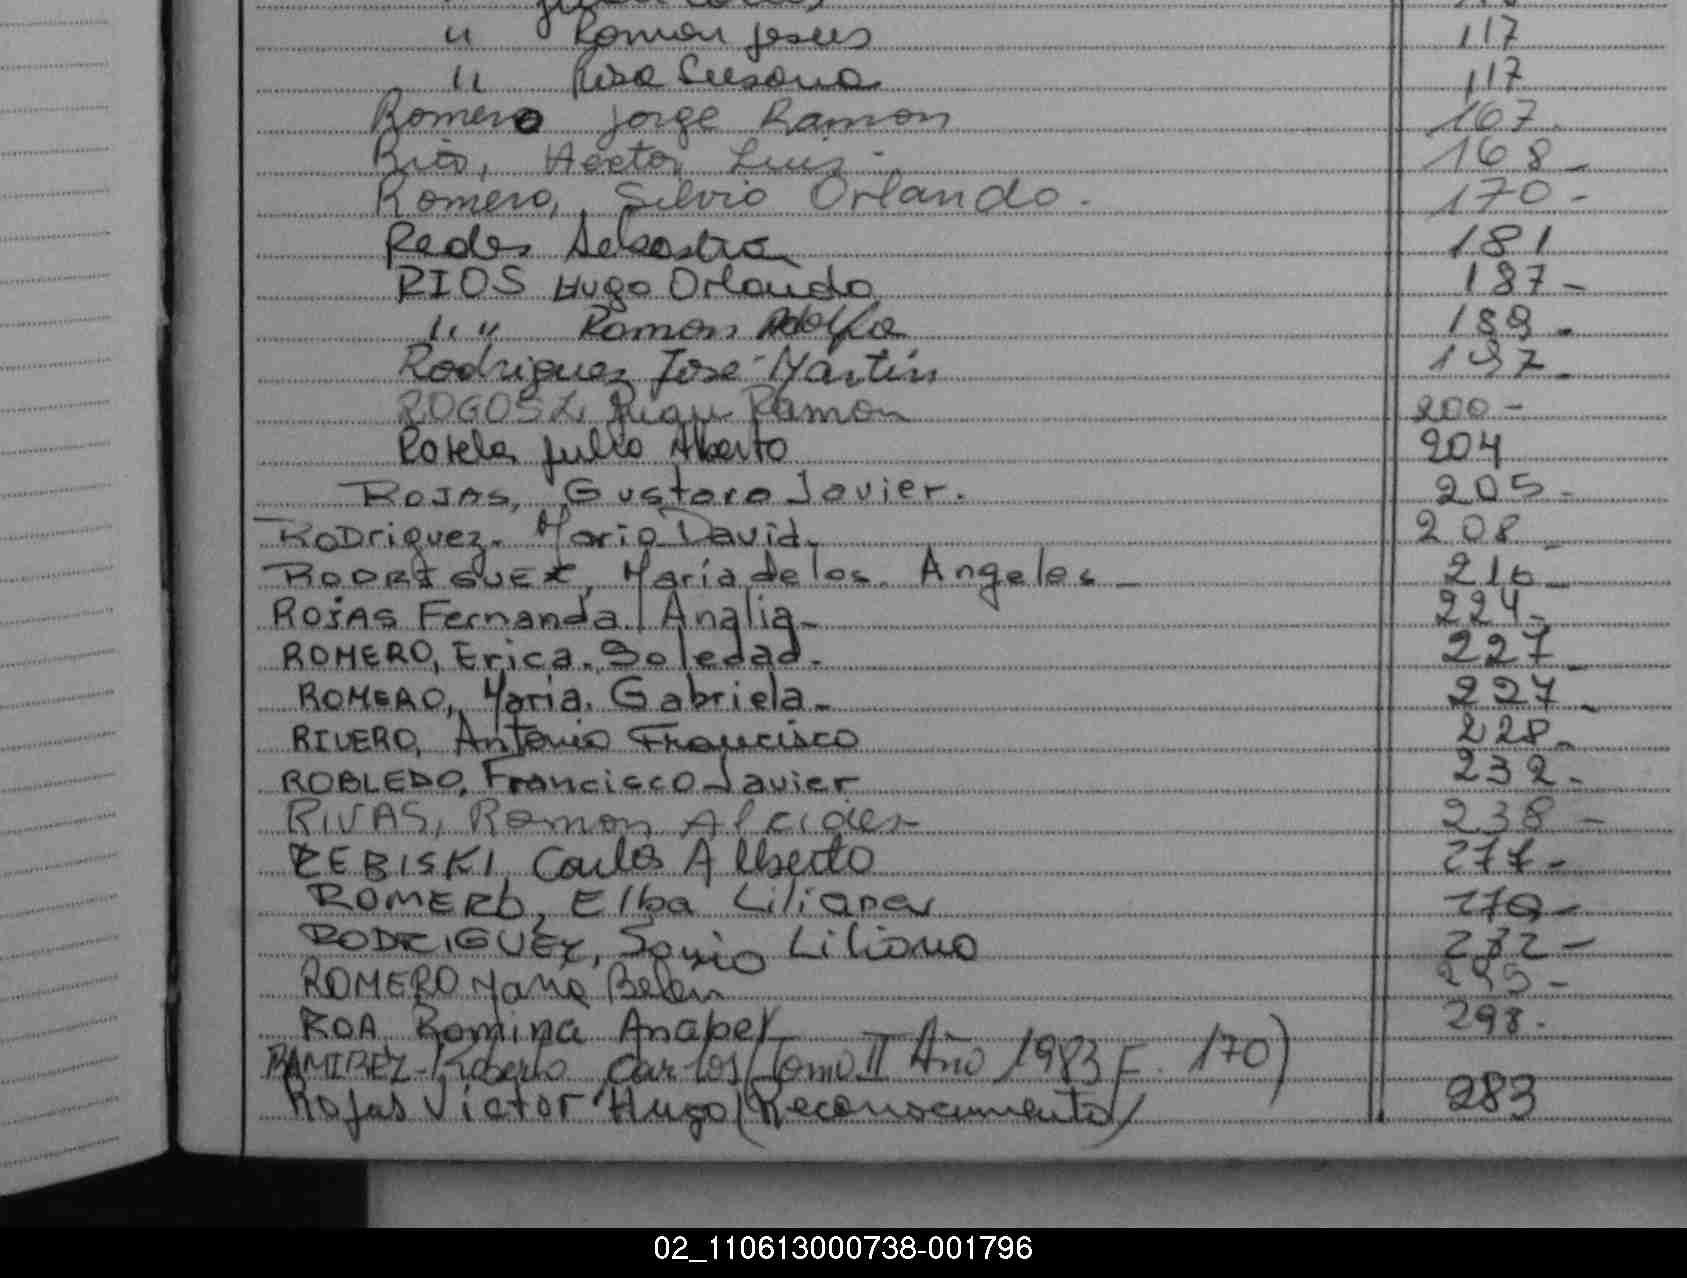 " Ramon Jesus 117
" Rosa Susana 117
Romero Jorge Ramon 167.
Rios, Hector Luis. 168-
Romero, Silvio Orlando. 170-
Redes 181
RIOS Hugo Orlando 187-
" " Ramon Adolfo 189-
Rodriguez José Martin 197-
Ramon 200-
Rotela Julio Alberto 204
ROJAS, Gustavo Javier. 205-
RODriguez. Mario David. 208-
RODRIGUEZ, María de los Angeles- 216-
ROJAS Fernanda Analia- 224-
ROMERO, Erica Soledad. 227-
ROMERO, Maria Gabriela- 227-
RIVERO, Antonio Francisco 228-
ROBLEDO, Francisco Javier 232-
RIVAS, Ramon Alcides- 238-
REBISKI, Carlos Alberto 277-
ROMERO, Elba Liliana
RODRIGUEZ, Sonia Liliana 282-
ROMERO Maria Belen 295-
ROA Romina Anabel 298-
RAMIREZ-Roberto Carlos (Tomo II Año 1983 F. 170)
Rojas Victor Hugo (Reconocimiento) 283
02_110613000738-001796